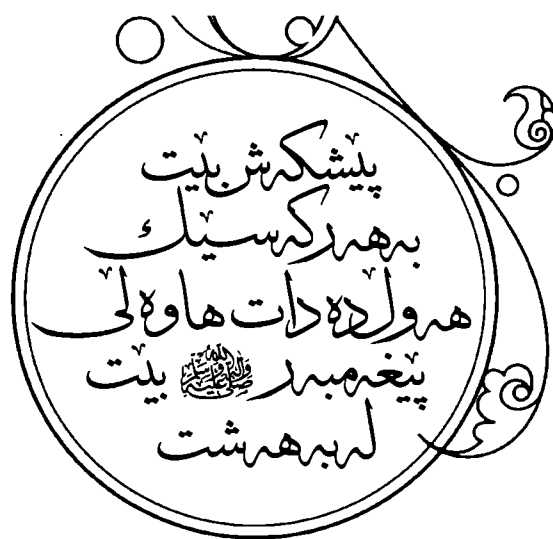 پێشکەش بێت
بەهەرکەسێك
هەوڵ دەدات هاوەڵی
پێغەمبەر ﷺ بێت
لەبەهەشت